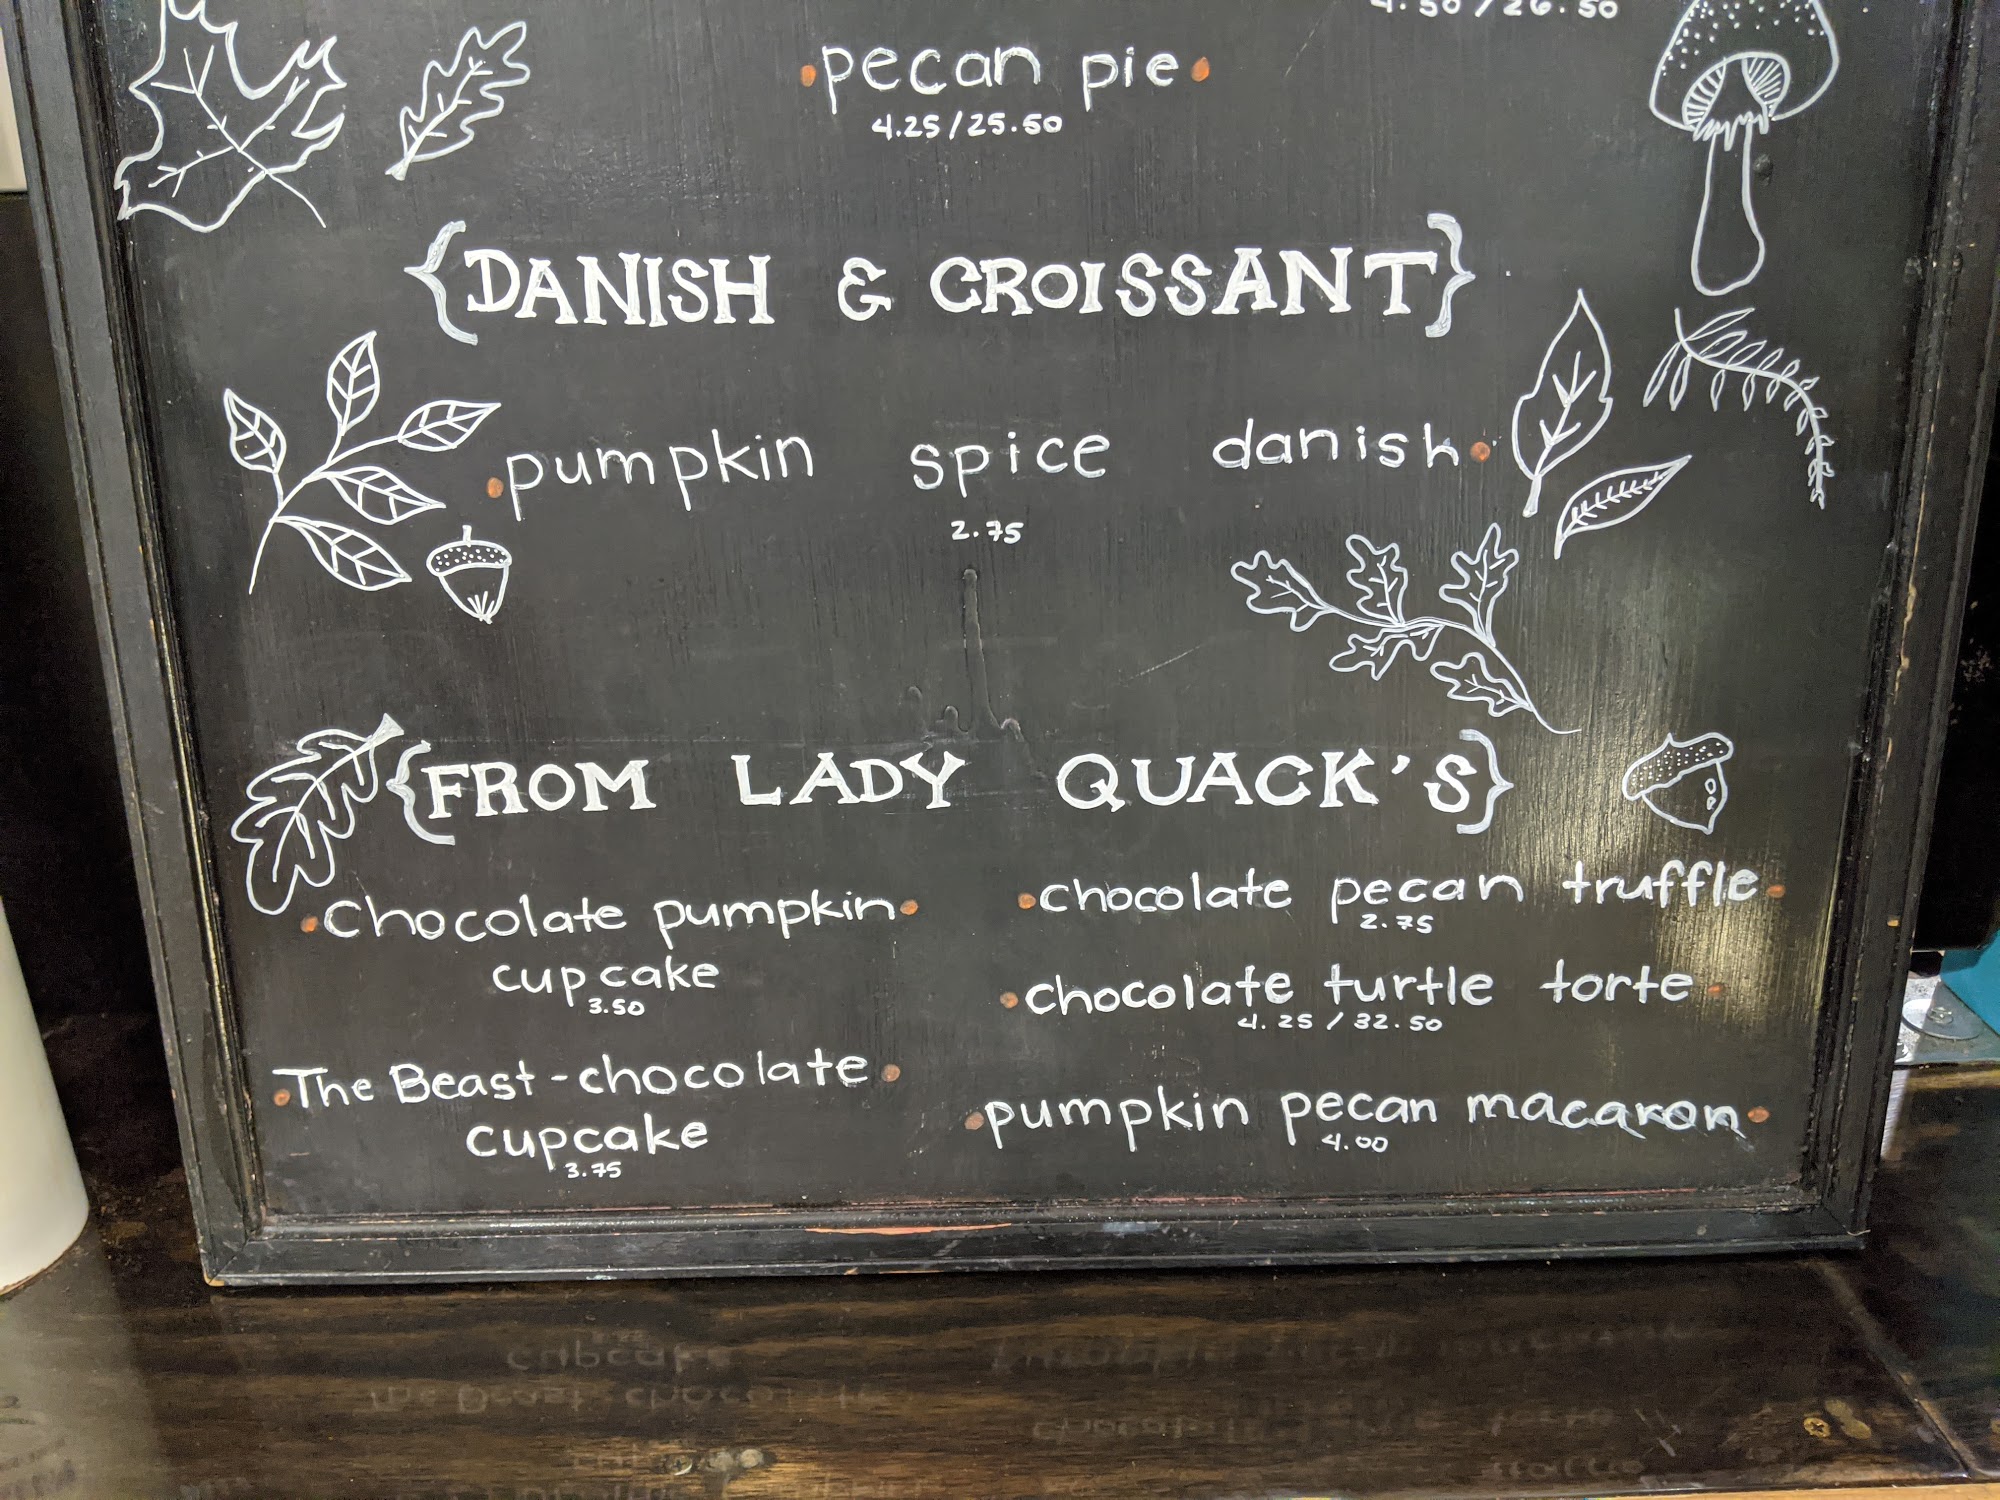 4.50/26.50
pecan pie
4.25/25.50
{DANISH & CROISSANT}
pumpkin spice danish
2.75
{FROM LADY QUACK'S}
Chocolate pumpkin
cupcake
3.50
The Beast-chocolate
cupcake
3.75
chocolate pecan truffle
2.75
chocolate turtle torte
4.25/32.50
pumpkin pecan macaron
4.00